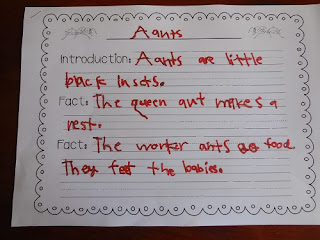 Aants
Introduction: Aants are little
black insets.
Fact: The queen ant makes a
nest.
Fact: The worker ants food
They feet the babies.